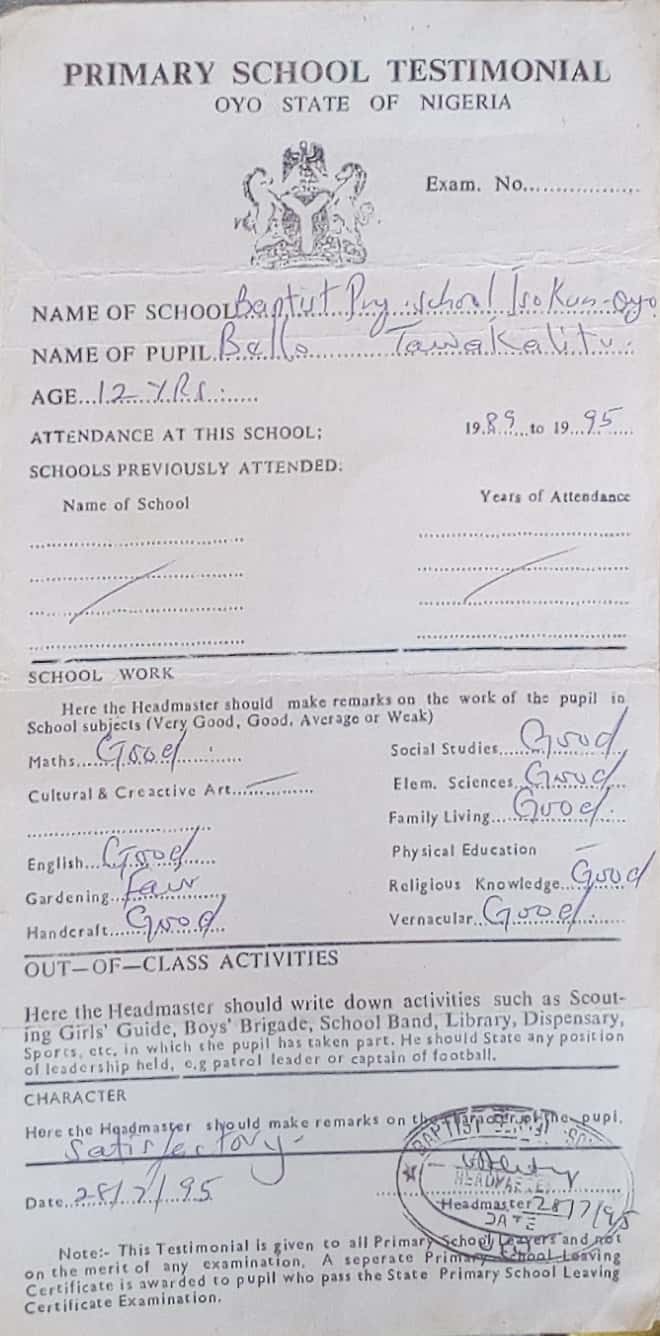 PRIMARY SCHOOL TESTIMONIAL
OYO STATE OF NIGERIA
Exam. No..................
NAME OF SCHOOL Baptist Pry. school Isokun-Oyo
NAME OF PUPIL Bello Tawakalitu.
AGE...12 YRS.......
ATTENDANCE AT THIS SCHOOL: 19.89...to 19...95......
SCHOOLS PREVIOUSLY ATTENDED:
Name of School Years of Attendance
SCHOOL WORK
Here the Headmaster should make remarks on the work of the pupil in
School subjects (Very Good, Good, Average or Weak)
Maths....Good.......... Social Studies....Good
Cultural & Creactive Art...—......... Elem. Sciences..Good
Family Living....Good
English...Good....... Physical Education —
Gardening...Fair...... Religious Knowledge...Good
Handcraft...Good Vernacular..Good.......
OUT—OF—CLASS ACTIVITIES
Here the Headmaster should write down activities such as Scout-
ing Girls' Guide, Boys' Brigade, School Band, Library, Dispensary,
Sports, etc. in which the pupil has taken part. He should State any position
of leadership held, e.g patrol leader or captain of football.
CHARACTER
Here the Headmaster should make remarks on the character of the pupil.
Satisfectory-
BAPTIST
HEADMASTER
Date..28/7/95 Headmaster 28/7/95
DATE
Note:- This Testimonial is given to all Primary School Leavers and not
on the merit of any examination. A seperate Primary School Leaving
Certificate is awarded to pupil who pass the State Primary School Leaving
Certificate Examination.